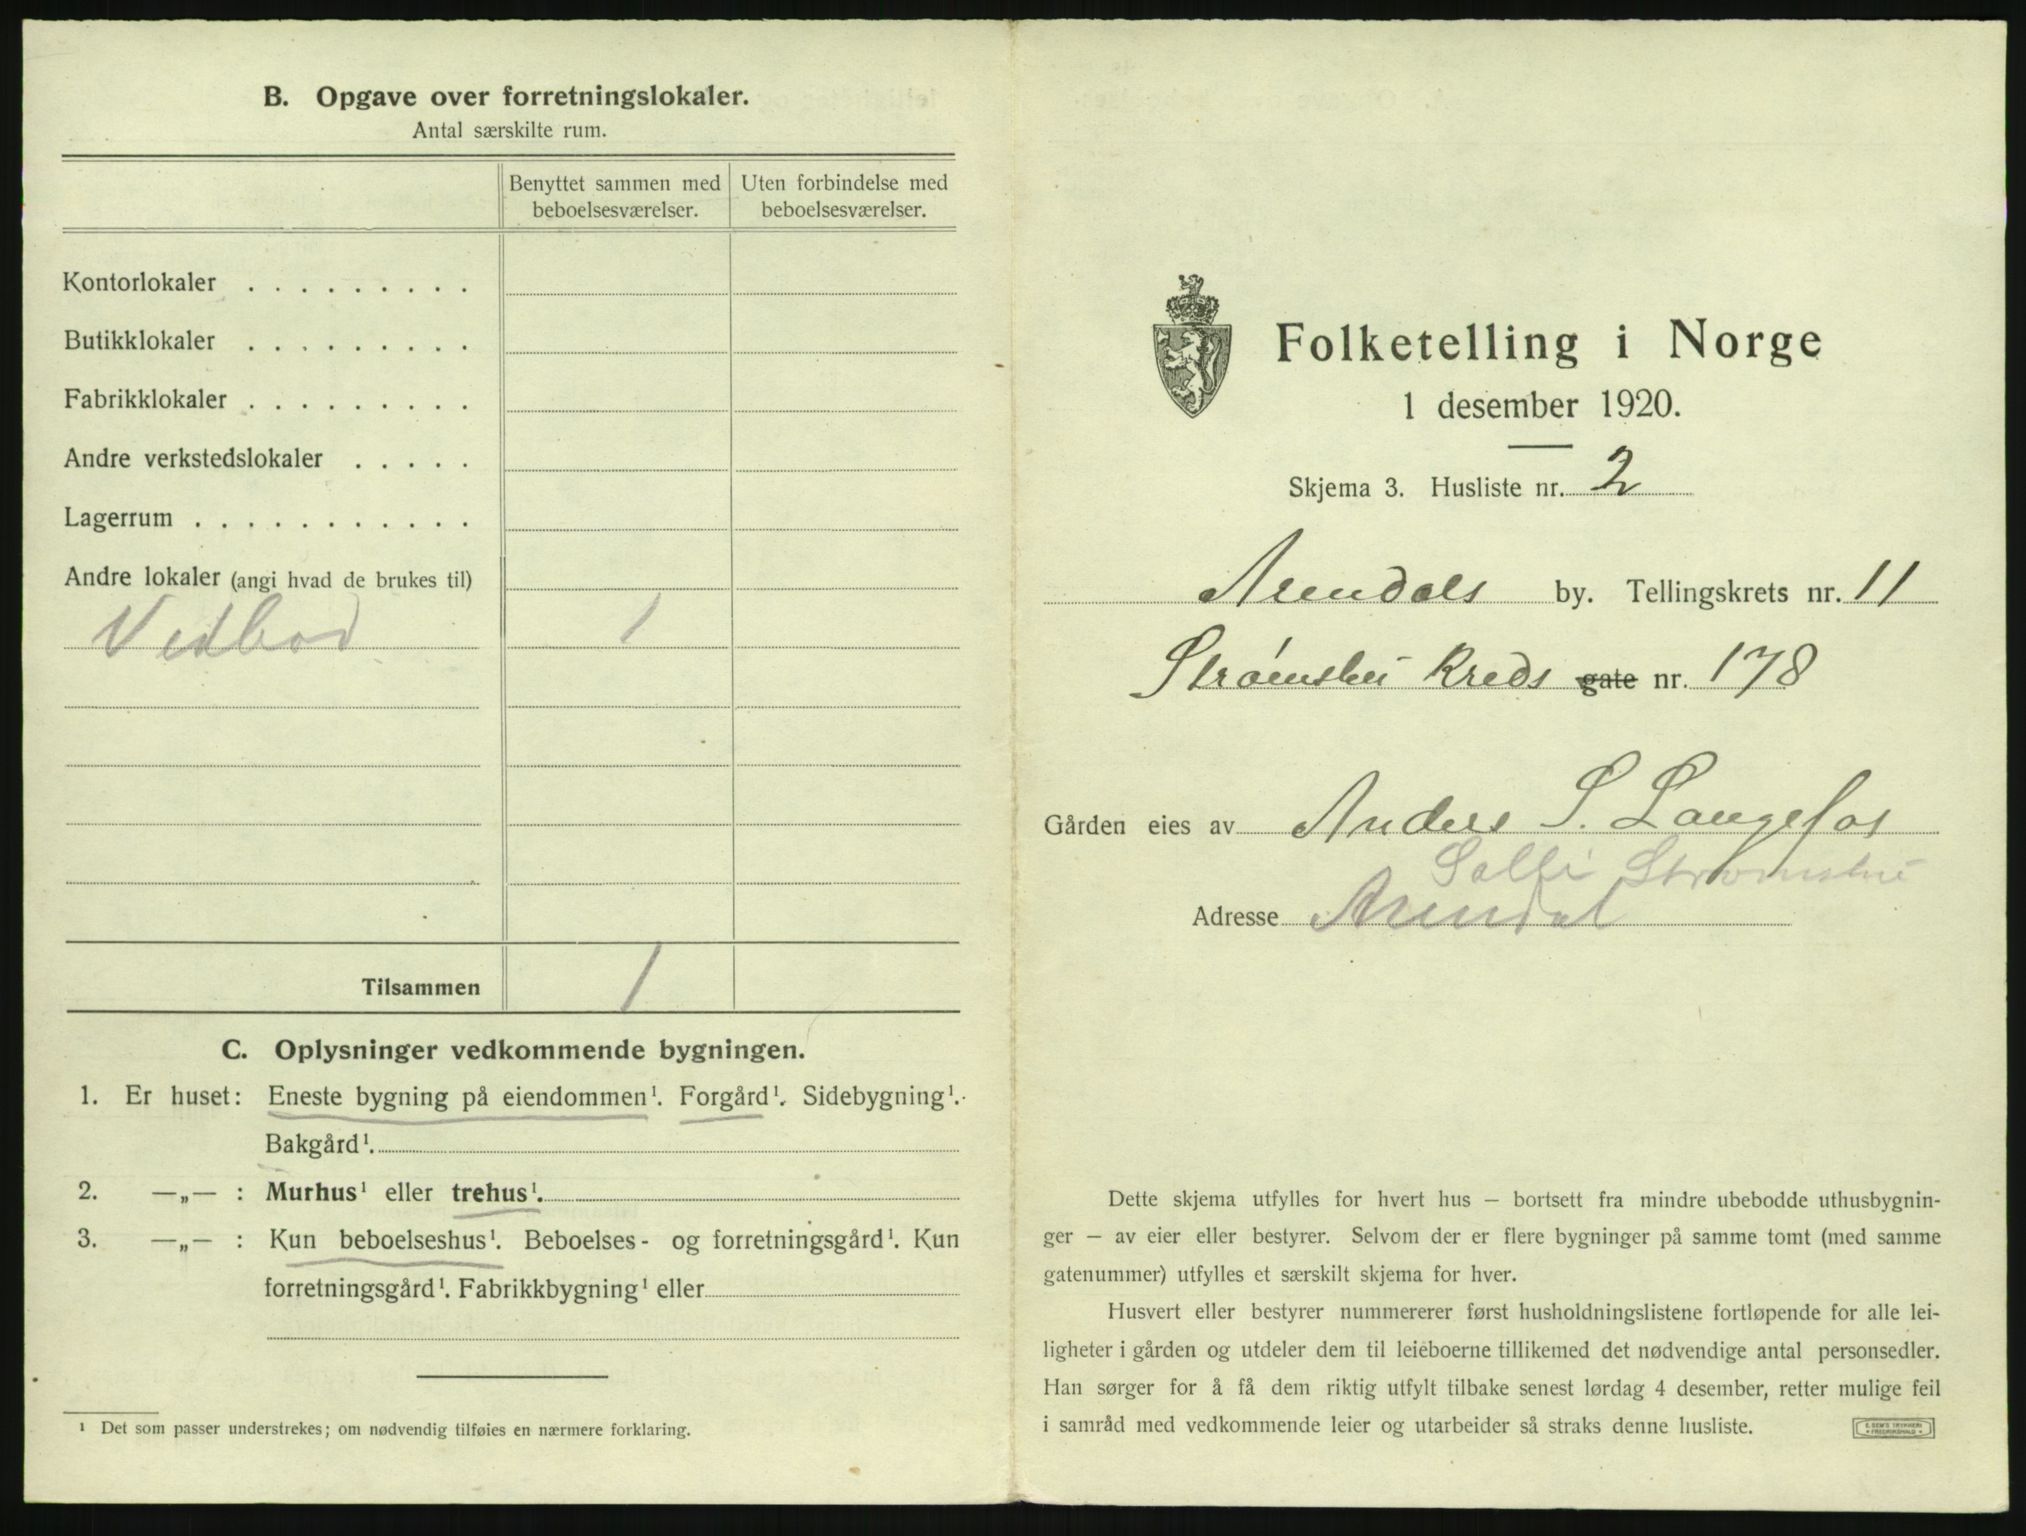 B. Opgave over forretningslokaler.
Antal særskilte rum.
Benyttet sammen med beboelsesværelser.
Uten forbindelse med beboelsesværelser.
Kontorlokaler . . . . . . . . .
Butikklokaler . . . . . . . . .
Fabrikklokaler . . . . . . . . .
Andre verkstedslokaler . . . . .
Lagerrum . . . . . . . . . . . .
Andre lokaler (angi hvad de brukes til)
Vedbod 1
Tilsammen 1
C. Oplysninger vedkommende bygningen.
1. Er huset: Eneste bygning på eiendommen¹. Forgård¹. Sidebygning¹.
Bakgård¹.
2. —„— : Murhus¹ eller trehus¹.
3. —„— : Kun beboelseshus¹. Beboelses- og forretningsgård¹. Kun
forretningsgård¹. Fabrikkbygning¹ eller
¹ Det som passer understrekes; om nødvendig tilføies en nærmere forklaring.
Folketelling i Norge
1 desember 1920.
Skjema 3. Husliste nr. 2
Arendals by. Tellingskrets nr. 11
Strømsbu Kreds gate nr. 178
Gården eies av Anders S. Langefos
Strømsbu
Adresse Arendal
Dette skjema utfylles for hvert hus — bortsett fra mindre ubebodde uthusbygnin-
ger — av eier eller bestyrer. Selvom der er flere bygninger på samme tomt (med samme
gatenummer) utfylles et særskilt skjema for hver.
Husvert eller bestyrer nummererer først husholdningslistene fortløpende for alle lei-
ligheter i gården og utdeler dem til leieboerne tillikemed det nødvendige antal personsedler.
Han sørger for å få dem riktig utfylt tilbake senest lørdag 4 desember, retter mulige feil
i samråd med vedkommende leier og utarbeider så straks denne husliste.
E. SEM'S TRYKKERI
FREDRIKSHALD